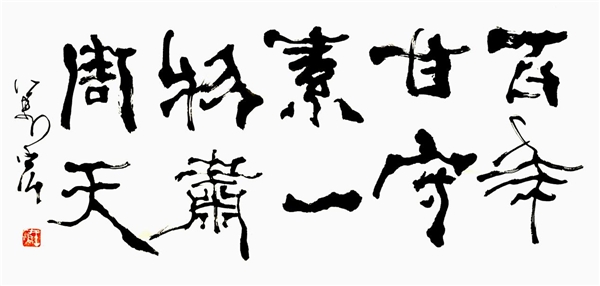 百年
甘守
素一
物蕭
周天